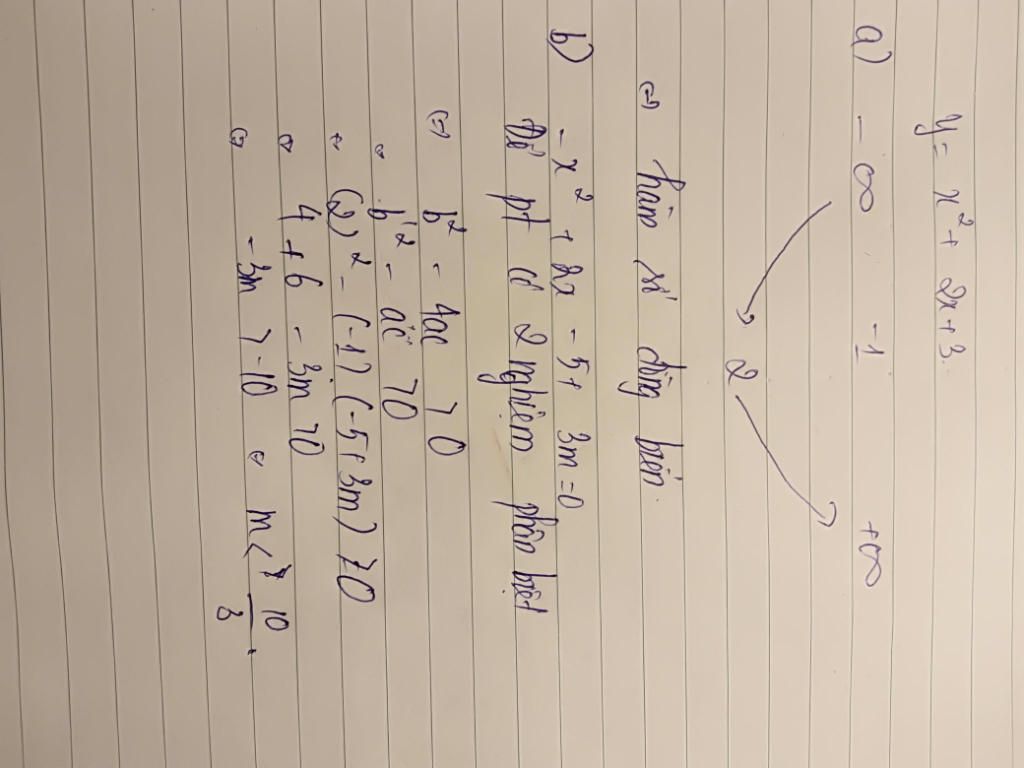 y = x² + 2x + 3.
a) -∞ -1 +∞
2
⇔ hàm số đồng biến.
b) -x² + 2x - 5 + 3m = 0
Để pt có 2 nghiệm phân biệt
⇔ b² - 4ac > 0
⇔ b'² - ac > 0
⇔ (2)² - (-1).(-5+3m) > 0
⇔ 4 + 6 - 3m > 0
⇔ -3m > -10 ⇔ m < 10/3.